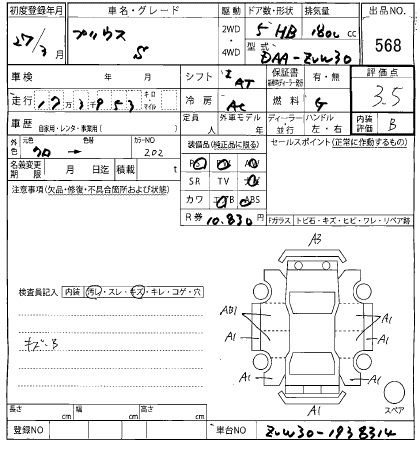 初度登録年月 車名・グレード 駆動 ドア数・形状 排気量 出品NO.
27/3月 プリウス S 2WD・4WD 5 HB 1800 cc 568
型式 DAA-ZVW30
車検 年 月 シフト I AT 保証書 有・無 評価点
走行 17万3千953 キロ・マイル 冷房 AC 燃料 G 3.5
車歴 自家用・レンタ・事業用( ) 定員 人 外車モデル 年 ディーラー・並行 ハンドル 左・右 内装評価 B
外色 元色 クロ → 色替 カラーNO 202 装備品(純正品に限る) セールスポイント(正常に作動するもの)
名義変更期限 月 日迄 積載 t PS PW AW
注意事項(欠品・修復・不具合箇所および状態) SR TV ナビ
カワ エアB ABS
R券 10.830円 Fガラス トビ石・キズ・ヒビ・ワレ・リペア跡
A3
検査員記入 内装 汚れ・スレ・キズ・キレ・コゲ・穴
キズ・B
A1 A1
A1 A1
A1 A1
A1
スペア
長さ cm 幅 cm 高さ cm
登録NO 車台NO ZVW30-1938314